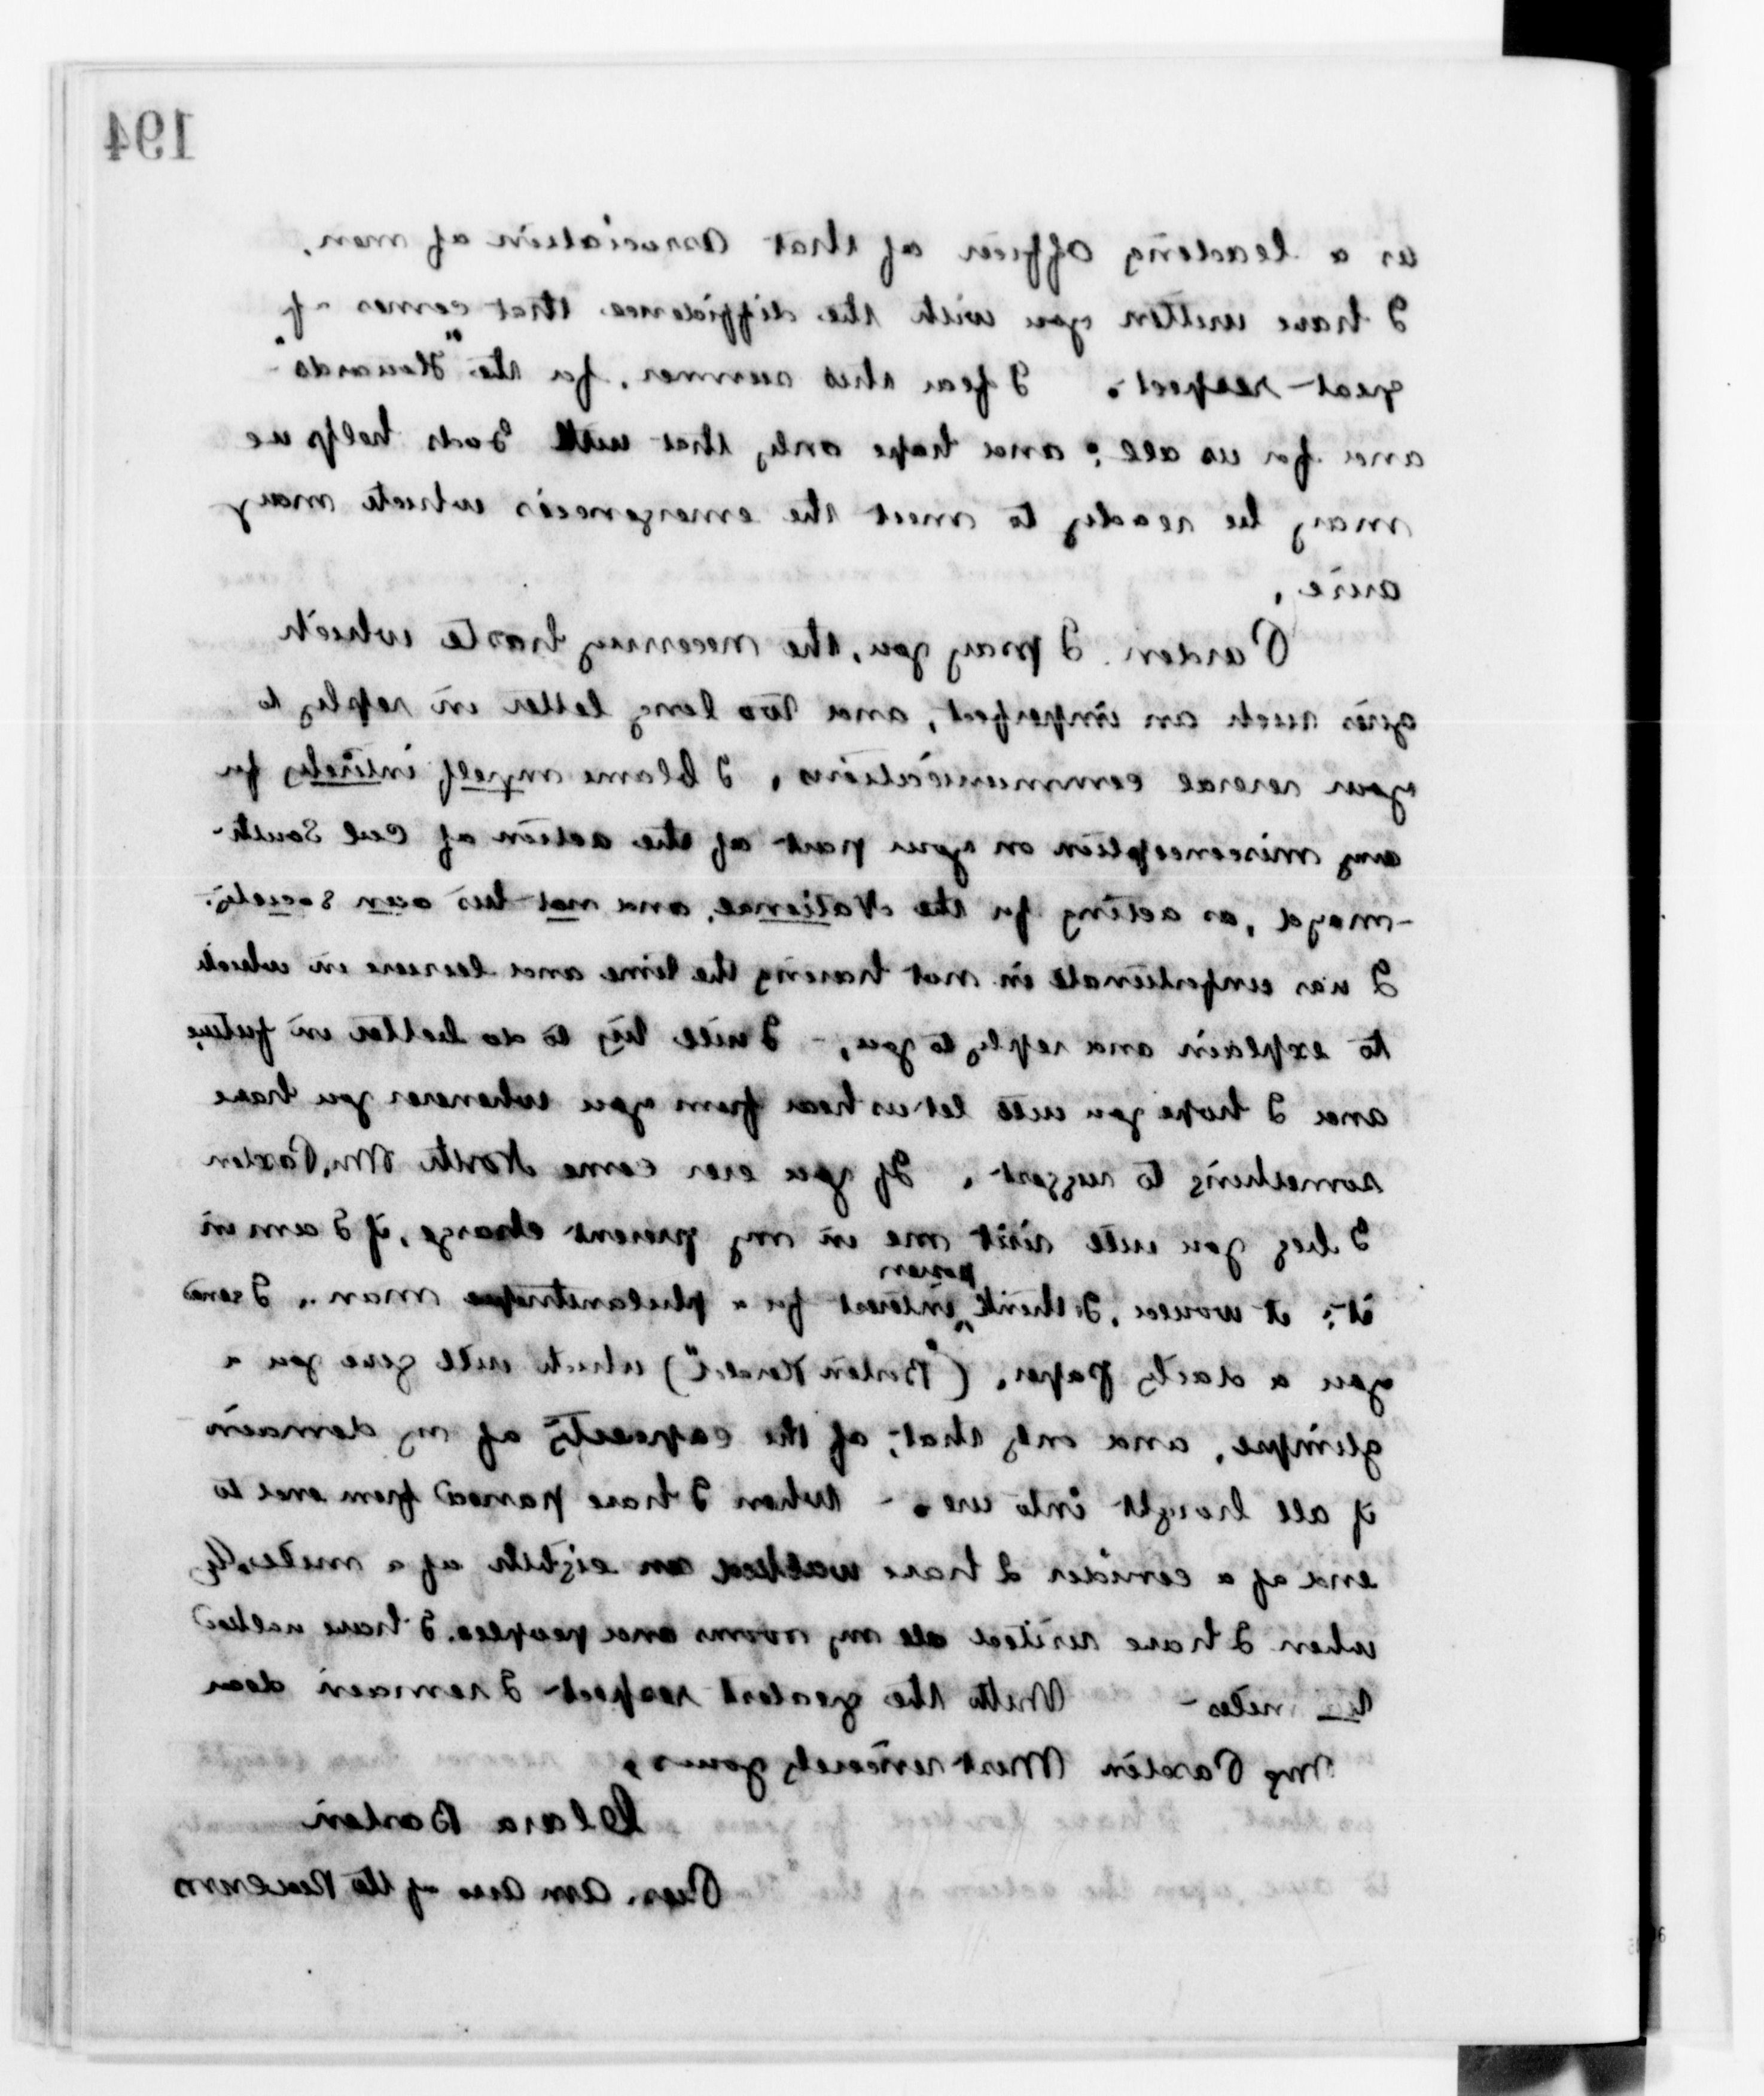 194
as a leading officer of that association of men.
I have written you with the diffidence that comes of
great respect. I fear this summer, for the "Howards"
and for us all; and hope only that with God's help we
may be ready to meet the emergencies which may
arise.
Pardon I pray you, the necessary haste which
gives such an imperfect, and too long letter in reply to
your several communications, I blame myself entirely for
any misconception on your part of the action of Col South-
-mayd, as acting for the National, and not his own society.
I was unfortunate in not having the time and leisure in which
to explain and reply to you, - I will try to do better in future,
and I hope you will let us hear from you whenever you have
something to suggest. If you ever come North Mr. Paxton
I beg you will visit me in my present charge, if I am in
it; it would, I think, possess interest for a philanthropic man. I send
you a daily paper, ("Boston Herald") which will give you a
glimpse, and only that, of the capacity of my domain
if all brought into use. - When I have passed from end to
end of a corridor I have walked an eighth of a mile,
when I have visited all my rooms and peoples. I have walked
miles - With the greatest respect I remain dear
Mr Paxton Most sincerely yours,
Clara Barton
Pres. Am Ass of the Red Cross